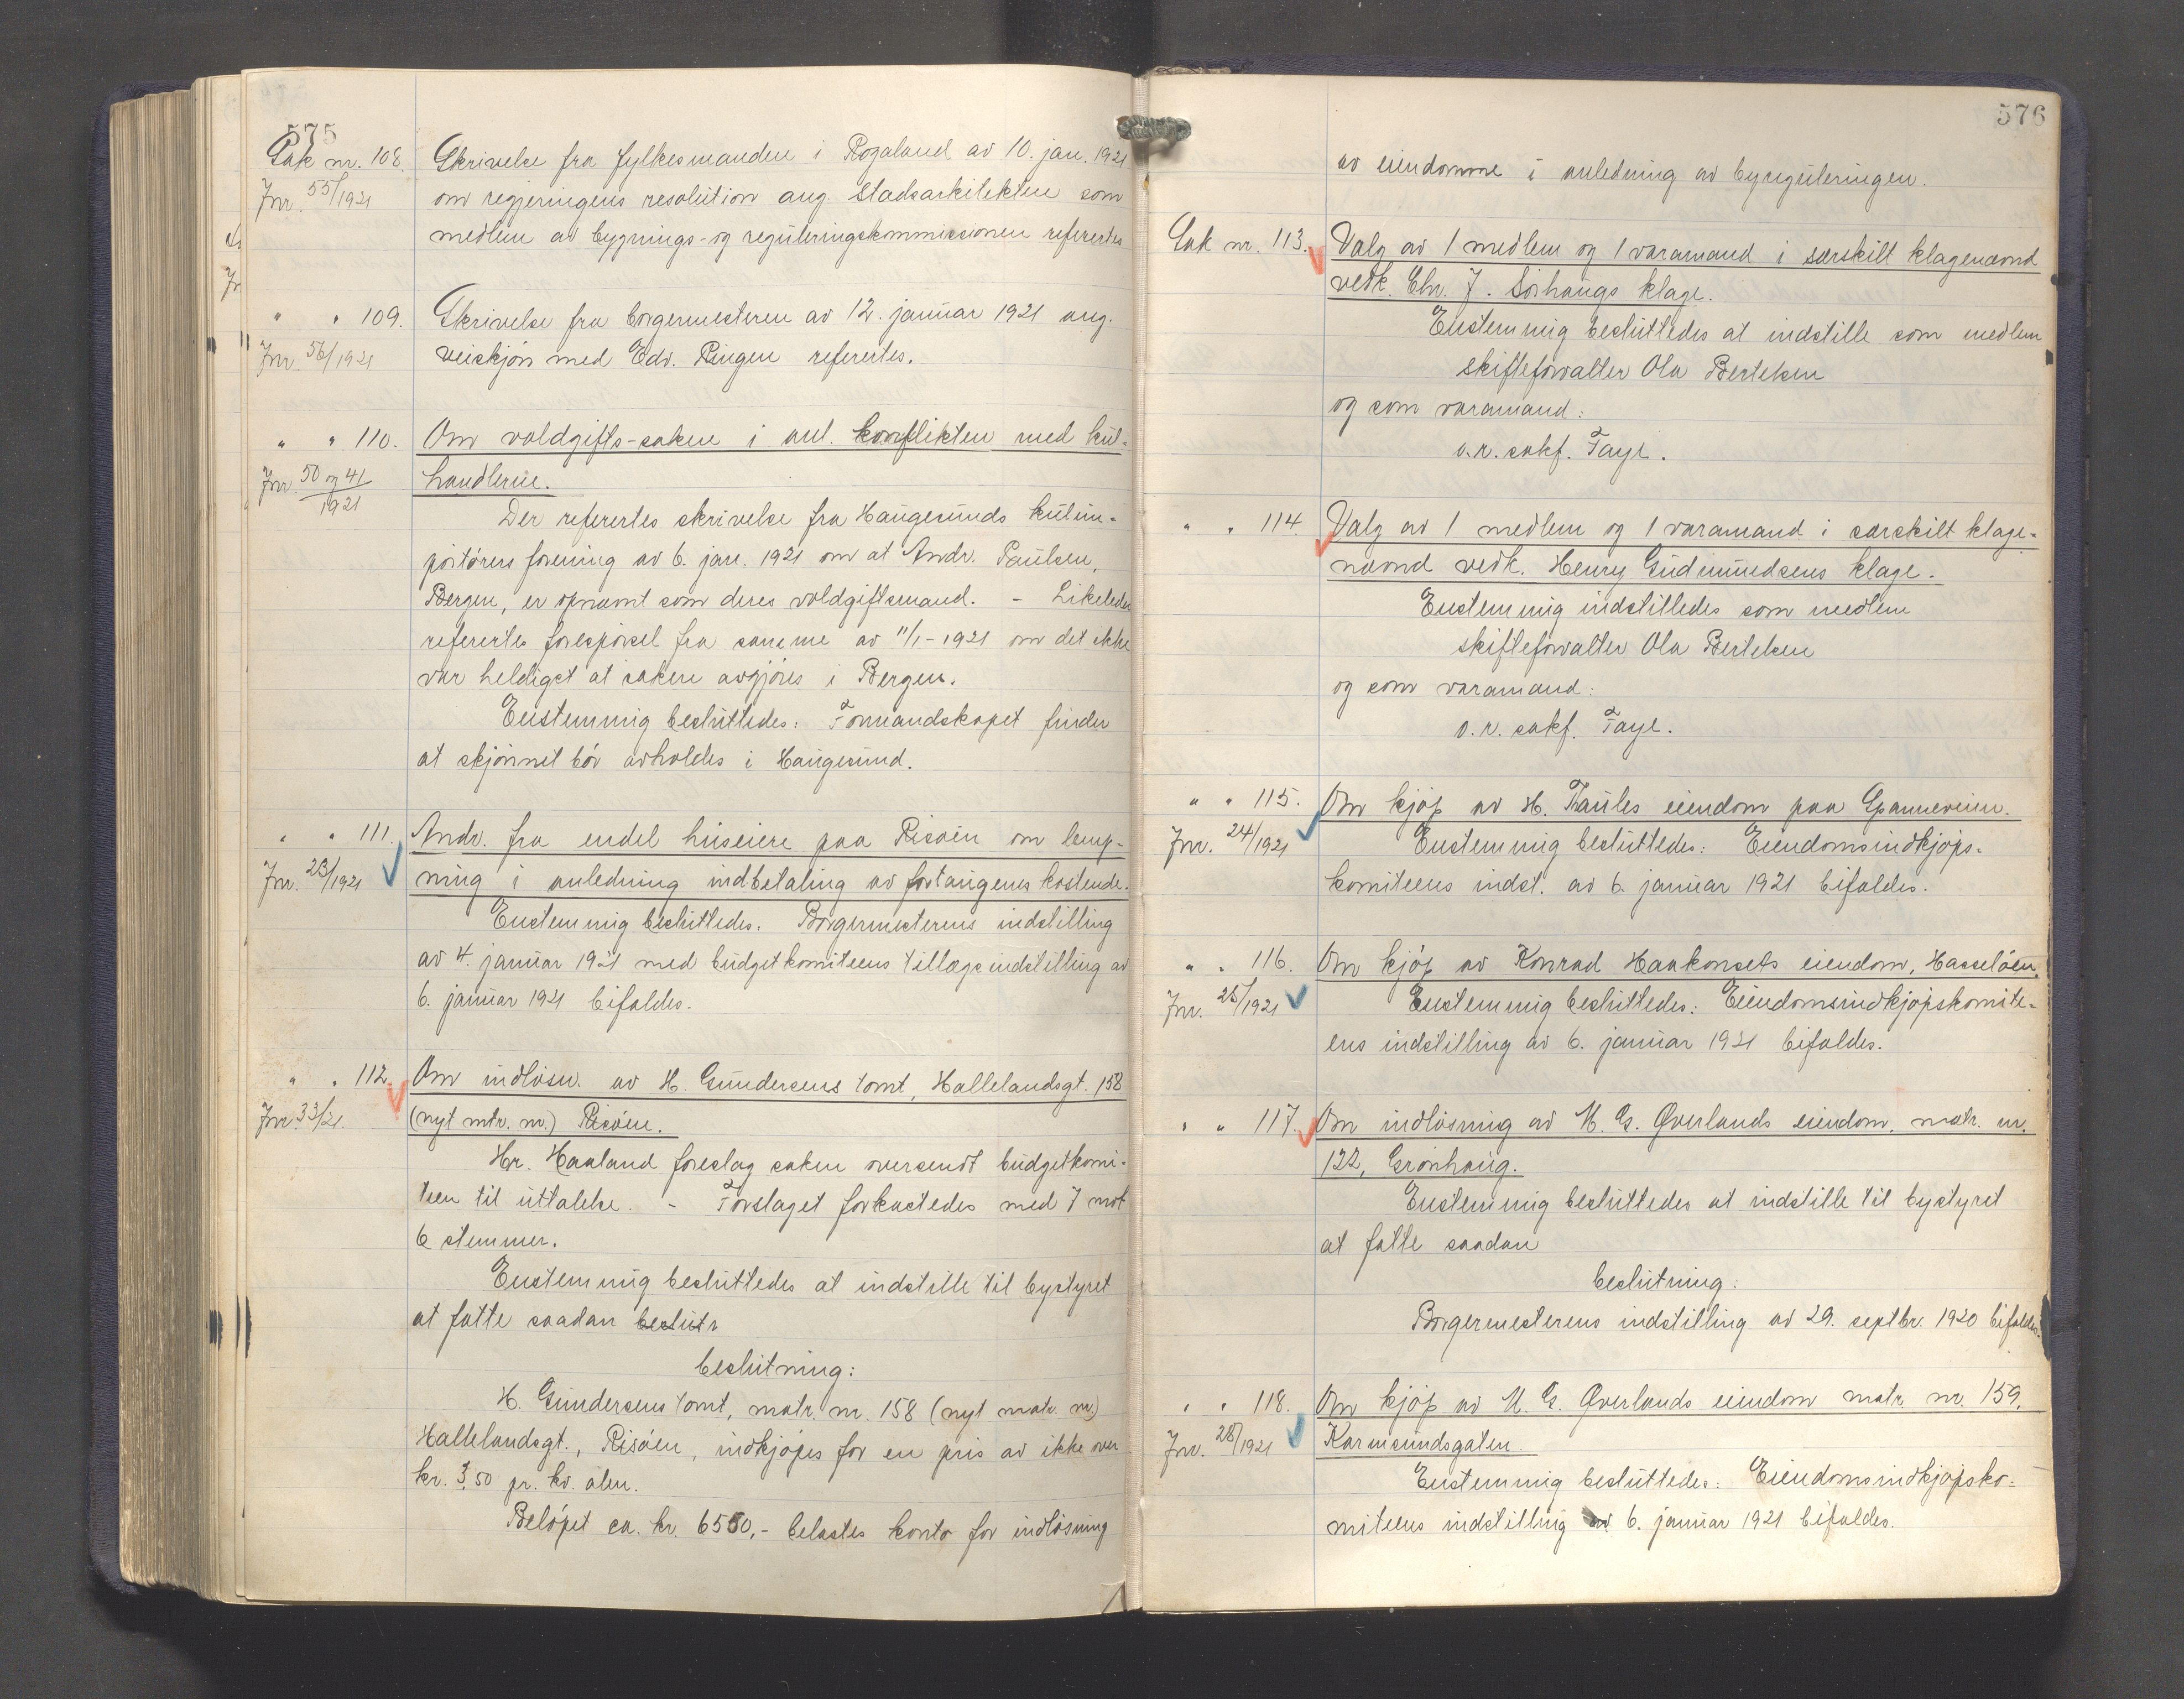 575
Sak nr. 108. Skrivelse fra fylkesmanden i Rogaland av 10. jan. 1921
Jnr. 55/1921 om regjeringens resolution ang. Stadsarkitekten som
medlem av bygnings- og reguleringskommissionen refertes
" " 109. Skrivelse fra borgermesteren av 12. januar 1921 ang.
Jnr. 56/1921 veiskjøn med Edv. Ringen refertes.
" " 110. Om voldgifts-saken i anl. konflikten med kul-
Jnr. 50 og 41/1921 handlerne.
Der refertes skrivelse fra Haugesunds kulim-
portørers forening av 6. jan. 1921 om at Andr. Paulsen,
Bergen, er opnævnt som deres voldgiftsmand. - Likeledes
refertes forespørsel fra samme av 11/1-1921 om det ikke
var heldigst at saken avgjøres i Bergen.
Enstemmig besluttedes: Formandskapet finder
at skjønnet bør avholdes i Haugesund.
" " 111. Andr. fra endel huseiere paa Risøen om lemp-
Jnr. 23/1921 ning i anledning indbetaling av fortaugenes kostende.
Enstemmig besluttedes: Borgermesterens indstilling
av 4. januar 1921 med budgetkomiteens tillægsindstilling av
6. januar 1921 bifaldes.
" " 112. Om indløsn. av H. Gundersens tomt, Hallelandsgt. 158
Jnr. 33/21. (nyt mtr. nr.) Risøen.
Hr. Haaland foreslog saken oversendt budgetkomi-
teen til uttalelse. - Forslaget forkastedes med 7 mot
6 stemmer.
Enstemmig besluttedes at indstille til bystyret
at fatte saadan beslutn
beslutning:
H. Gundersens tomt, matr. nr. 158 (nyt matr. nr.)
Hallelandsgt., Risøen, indkjøpes for en pris av ikke over
kr. 3,50 pr. kv. alen.
Beløpet ca. kr. 6550,- belastes konto for indløsning
576
av eiendomme i anledning av byreguleringen.
Sak nr. 113. Valg av 1 medlem og 1 varamand i særskilt klagenævnd
vedk. Chr. J. Sørhaugs klage.
Enstemmig besluttedes at indstille som medlem
skifteforvalter Ola Bertelsen
og som varamand:
o.r. sakf. Faye.
" " 114. Valg av 1 medlem og 1 varamand i særskilt klage-
nævnd vedk. Henry Gudmundsens klage.
Enstemmig indstilledes som medlem
skifteforvalter Ola Bertelsen
og som varamand:
o.r. sakf. Faye.
" " 115. Om kjøp av H. Thaules eiendom paa Spanneveien.
Jnr. 24/1921 Enstemmig besluttedes: Eiendomsindkjøps-
komiteens indst. av 6. januar 1921 bifaldes.
" " 116. Om kjøp av Konrad Haakonsets eiendom, Hasseløen.
Jnr. 25/1921 Enstemmig besluttedes: Eiendomsindkjøpskomite-
ens indstilling av 6. januar 1921 bifaldes.
" " 117. Om indløsning av M. G. Øverlands eiendom, matr. nr.
122, Grønhaug.
Enstemmig besluttedes at indstille til bystyret
at fatte saadan
beslutning:
Borgermesterens indstilling av 29. septbr. 1920 bifaldes.
" " 118. Om kjøp av M. G. Øverlands eiendom matr. nr. 159,
Jnr. 28/1921 Karmsundsgaten.
Enstemmig besluttedes: Eiendomsindkjøpsko-
miteens indstilling av 6. januar 1921 bifaldes.